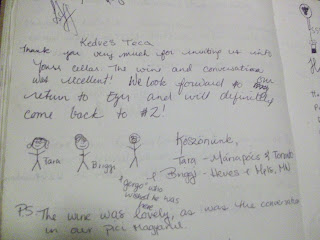 Kedves Teca
Thank you very much for inviting us into
your cellar. The wine and conversation
was excellent! We look forward to our
return to Egri and will definitely
come back to #2!
Köszönünk,
Tara Briggs
Tara - & Toronto
Briggs - Heves & Mpls, MN
*gergo* who
wished he was
here
PS The wine was lovely, as was the conversation
in our pici Magyarul.